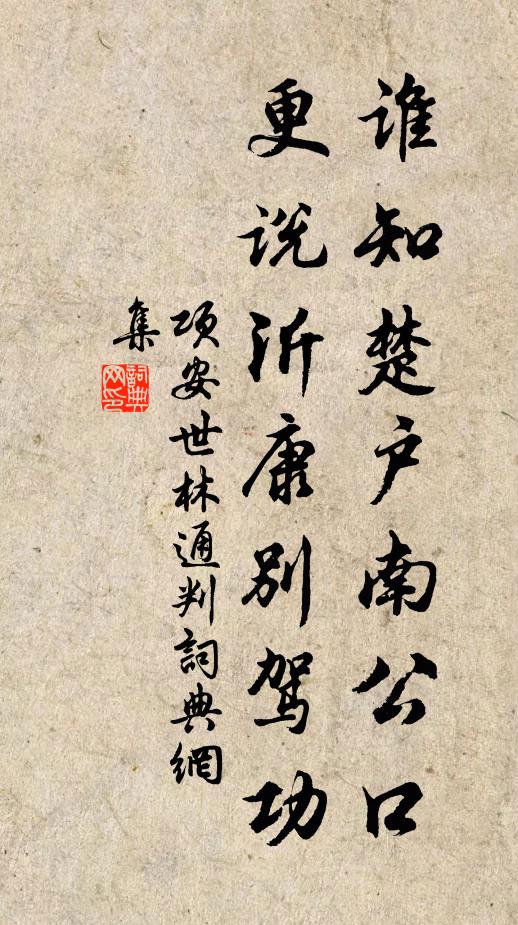 谁知楚户南公口
更说沂康别驾功
项安世林通判詞典網
集
詞典
网印